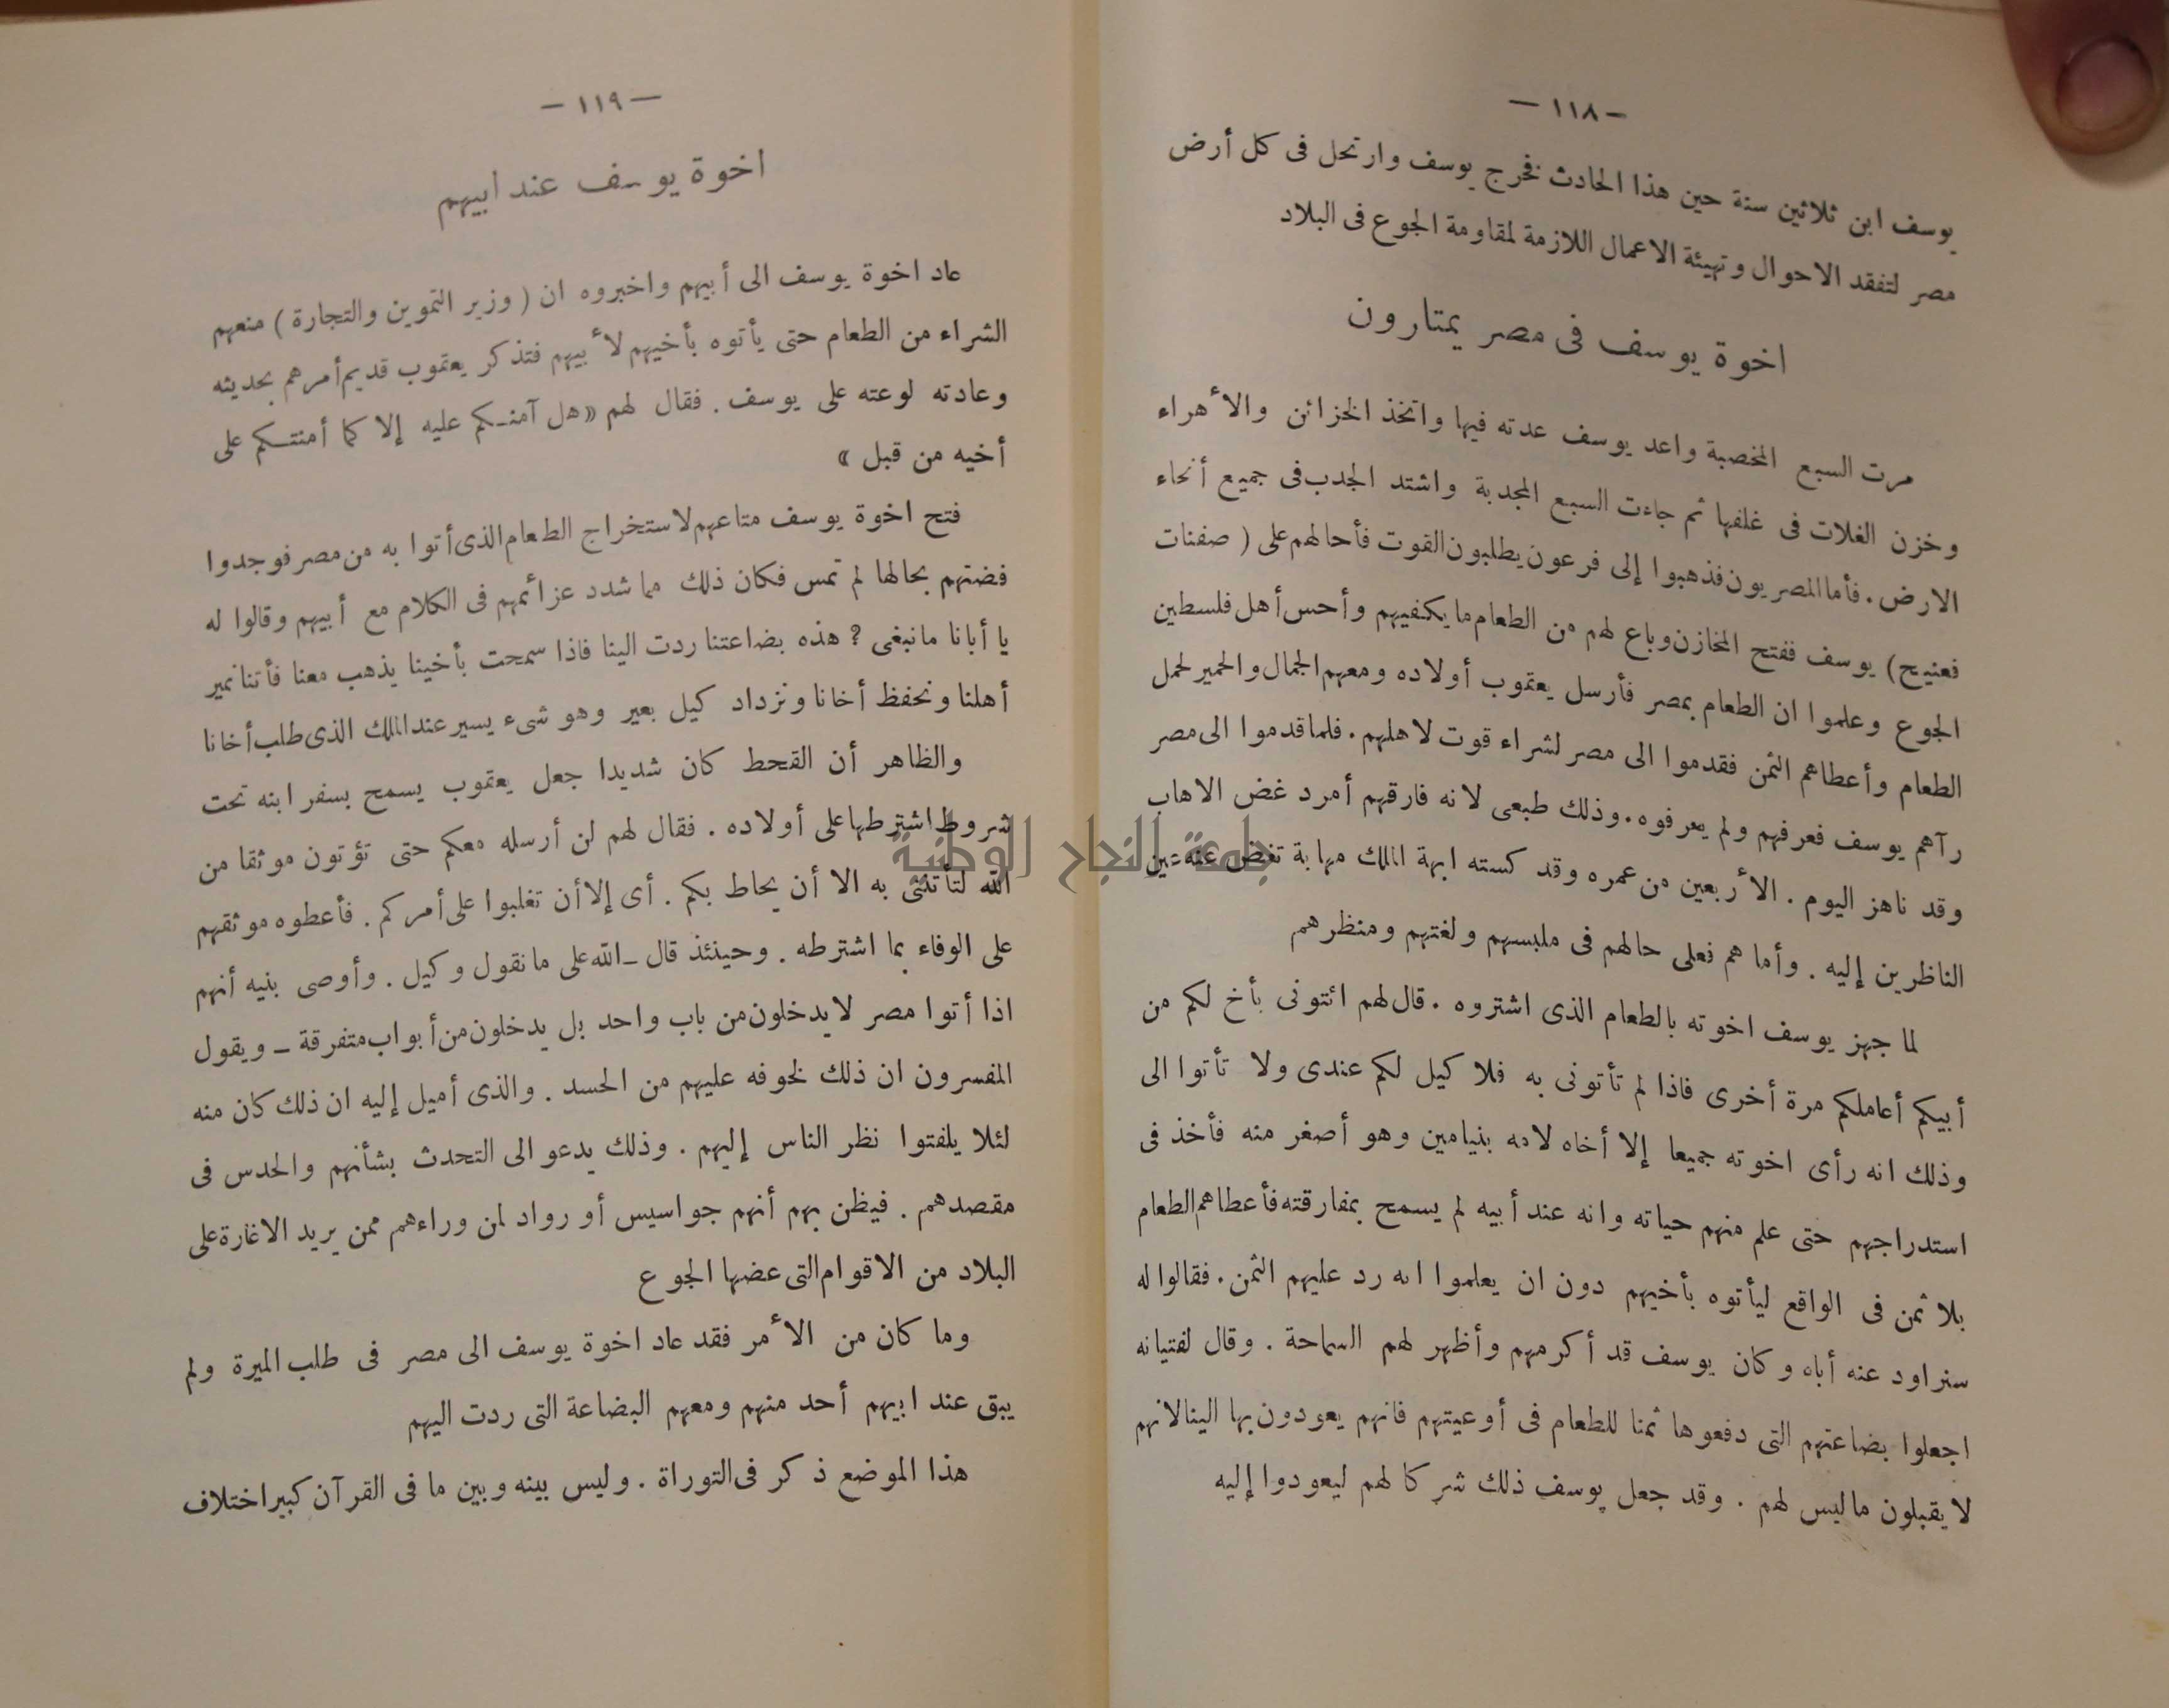 — ١١٨ —
يوسف ابن ثلاثين سنة حين هذا الحادث فخرج يوسف وارتحل فى كل أرض
مصر لتفقد الاحوال وتهيئة الاعمال اللازمة لمقاومة الجوع فى البلاد
اخوة يوسف فى مصر يمتارون
مرت السبع المخصبة واعد يوسف عدته فيها واتخذ الخزائن والأهراء
وخزن الغلات فى غلفها ثم جاءت السبع المجدبة واشتد الجدب فى جميع أنحاء
الارض . فأما المصريون فذهبوا إلى فرعون يطلبون القوت فأحالهم على ( صفنات
فعنيح ) يوسف ففتح المخازن وباع لهم من الطعام ما يكفيهم وأحس أهل فلسطين
الجوع وعلموا ان الطعام بمصر فأرسل يعقوب أولاده ومعهم الجمال والحمير لحمل
الطعام وأعطاهم الثمن فقدموا الى مصر لشراء قوت لاهلهم . فلما قدموا الى مصر
رآهم يوسف فعرفهم ولم يعرفوه . وذلك طبعى لانه فارقهم أمرد غض الاهاب
وقد ناهز اليوم . الأربعين من عمره وقد كسته ابهة الملك مهابة تغض عنه عين
الناظرين إليه . وأما هم فعلى حالهم فى ملبسهم ولغتهم ومنظرهم
لما جهز يوسف اخوته بالطعام الذى اشتروه . قال لهم ائتونى بأخ لكم من
أبيكم أعاملكم مرة أخرى فاذا لم تأتونى به فلا كيل لكم عندى ولا تأتوا الى
وذلك انه رأى اخوته جميعا إلا أخاه لامه بنيامين وهو أصغر منه فأخذ فى
استدراجهم حتى علم منهم حياته وانه عند أبيه لم يسمح بمفارقته فأعطاهم الطعام
بلا ثمن فى الواقع ليأتوه بأخيهم دون ان يعلموا انه رد عليهم الثمن . فقالوا له
سنراود عنه أباه وكان يوسف قد أكرمهم وأظهر لهم السماحة . وقال لفتيانه
اجعلوا بضاعتهم التى دفعوها ثمنا للطعام فى أوعيتهم فانهم يعودون بها الينا لانهم
لا يقبلون ما ليس لهم . وقد جعل يوسف ذلك شركا لهم ليعودوا إليه
— ١١٩ —
اخوة يوسف عند أبيهم
عاد اخوة يوسف الى أبيهم واخبروه ان ( وزير التموين والتجارة ) منعهم
الشراء من الطعام حتى يأتوه بأخيهم لأبيهم فتذكر يعقوب قديم أمرهم بحديثه
وعادته لوعته على يوسف . فقال لهم « هل آمنكم عليه إلا كما أمنتكم على
أخيه من قبل »
فتح اخوة يوسف متاعهم لاستخراج الطعام الذى أتوا به من مصر فوجدوا
فضتهم بحالها لم تمس فكان ذلك مما شدد عزائمهم فى الكلام مع أبيهم وقالوا له
يا أبانا ما نبغى ؟ هذه بضاعتنا ردت الينا فاذا سمحت بأخينا يذهب معنا فأتنا نمير
أهلنا ونحفظ أخانا ونزداد كيل بعير وهو شىء يسير عند الملك الذى طلب أخانا
والظاهر أن القحط كان شديدا جعل يعقوب يسمح بسفر ابنه تحت
شروط اشترطها على أولاده . فقال لهم لن أرسله معكم حتى تؤتون موثقا من
الله لتأتننى به الا أن يحاط بكم . أى إلا أن تغلبوا على أمركم . فأعطوه موثقهم
على الوفاء بما اشترطه . وحينئذ قال ـ الله على ما نقول وكيل . وأوصى بنيه أنهم
اذا أتوا مصر لا يدخلون من باب واحد بل يدخلون من أبواب متفرقة ـ ويقول
المفسرون ان ذلك لخوفه عليهم من الحسد . والذى أميل إليه ان ذلك كان منه
لئلا يلفتوا نظر الناس إليهم . وذلك يدعو الى التحدث بشأنهم والحدس فى
مقصدهم . فيظن بهم أنهم جواسيس أو رواد لمن وراءهم ممن يريد الاغارة على
البلاد من الاقوام التى عضها الجوع
وما كان من الأمر فقد عاد اخوة يوسف الى مصر فى طلب الميرة ولم
يبق عند ابيهم أحد منهم ومعهم البضاعة التى ردت اليهم
هذا الموضع ذكر فى التوراة . وليس بينه وبين ما فى القرآن كبير اختلاف
جامعة النجاح الوطنية